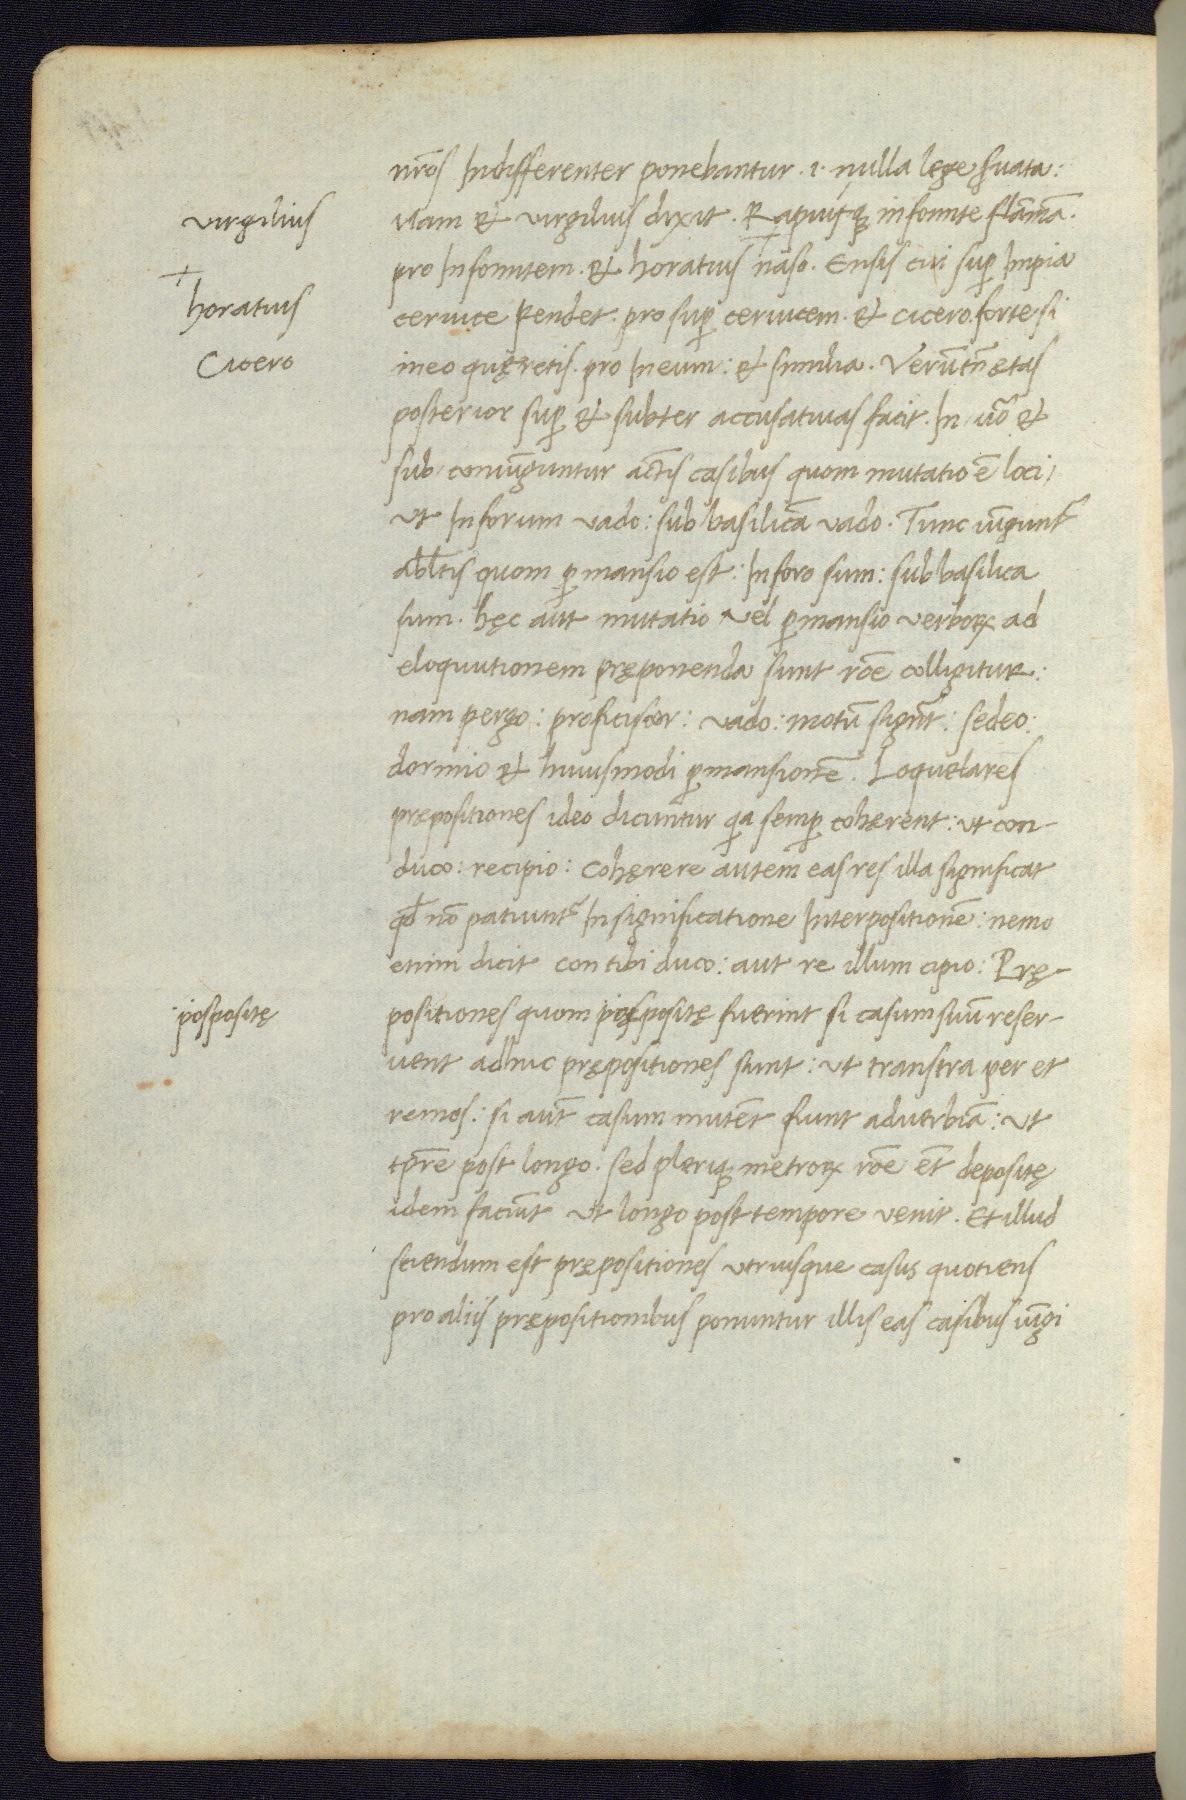 nr̃os Indifferenter ponebantur . i . nulla lege ſuata :
virgilius
Nam & virgilius dixit . Rapuitq; in fomite flãmã .
pro In fomitem . & horatius naso . Ensis cui sup̱ Impia
+
horatius
ceruice Pendet . pro sup̱ ceruicem . & cicero . forte si
Cicero
in eo quęretis . pro In eum : & similia . Verũtñ ętas
posterior sup̱ & subter accusatiuas facit . In uõ &
sub coniũguntur actĩs casibus quom mutatio ẽ loci /
ut In forum vado : sub basilicã vado . Tunc iũgunt᷑
abl̃tis quom p̱mansio est : In foro sum : sub basilica
sum . hęc aut̃ mutatio vel p̱mansio verboꝝ ad
eloquutionem pręponenda sunt rõe colligitur :
nam pergo : proficiscor : vado : motũ signt̃ : sedeo :
dormio & huiusmodi p̱mansionẽ . Loquelares
prępositiones ideo dicuntur qa semp̱ cohęrent : ut con-
duco : recipio : Cohęrere autem eas res illa significat
qđ nõ patiunt᷑ In significatione Interpositionẽ : nemo
enim dicit con tibi duco : aut re illum cipio : Prę-
pospositę
positiones quom pospositę fuerint si casum suũ reser-
uent adhuc prępositiones sunt : ut transtra per et
remos : si aut̃ casum mutẽt fiunt aduerbia : ut
tp̃re post longo . sed pleriq; metroꝝ rõe et̃ depositę
idem faciũt ut longo post tempore venit . Et illud
sciendum est prępositiones utriusque casus quotiens
pro aliis prępositionibus ponuntur illis eas casibus iũgi